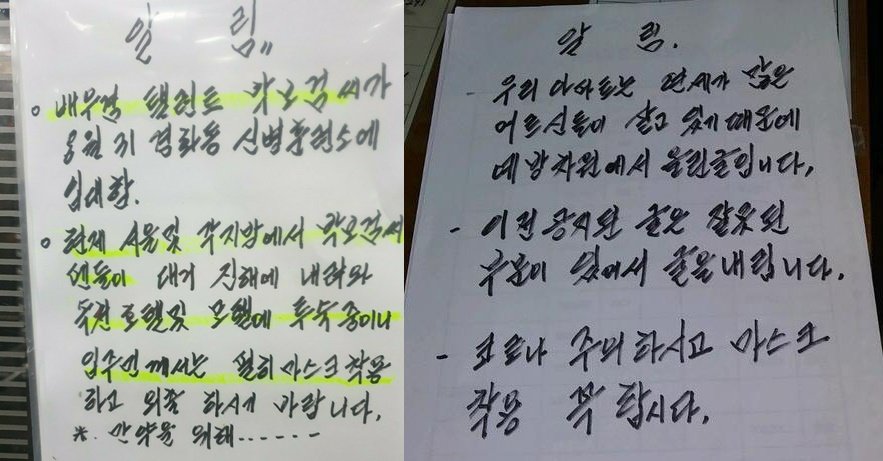 알 림"
○ 배우겸 탤런트 박보검 씨가
경화동 신병훈련소에
입대함.
○ 현재 서울및 각지방에서 박보검씨
팬들이 대거 진해에 내려와
호텔및 모텔에 투숙중이니
입주민께서는 필히 마스크 착용
하고 외출 하시게 바랍니다.
※. 만약을 위해------
알 림.
우리 아파트는 연세가 많은
어르신들이 살고 있기 때문에
예방차원에서 올린글입니다.
- 이전 공지된 글은 잘못된
부분이 있어서 글을내립니다.
- 코로나 주의하시고 마스크
착용 꼭 합시다.